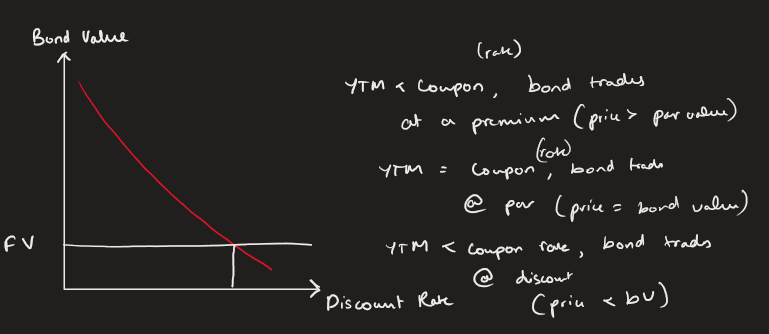 Bond Value
(rate)
YTM < Coupon, bond trades
at a premium (price > par value)
(rate)
YTM = Coupon, bond trads
@ par (price = bond value)
FV
YTM < coupon rate, bond trads
@ discount
Discount Rate
(price < bv)